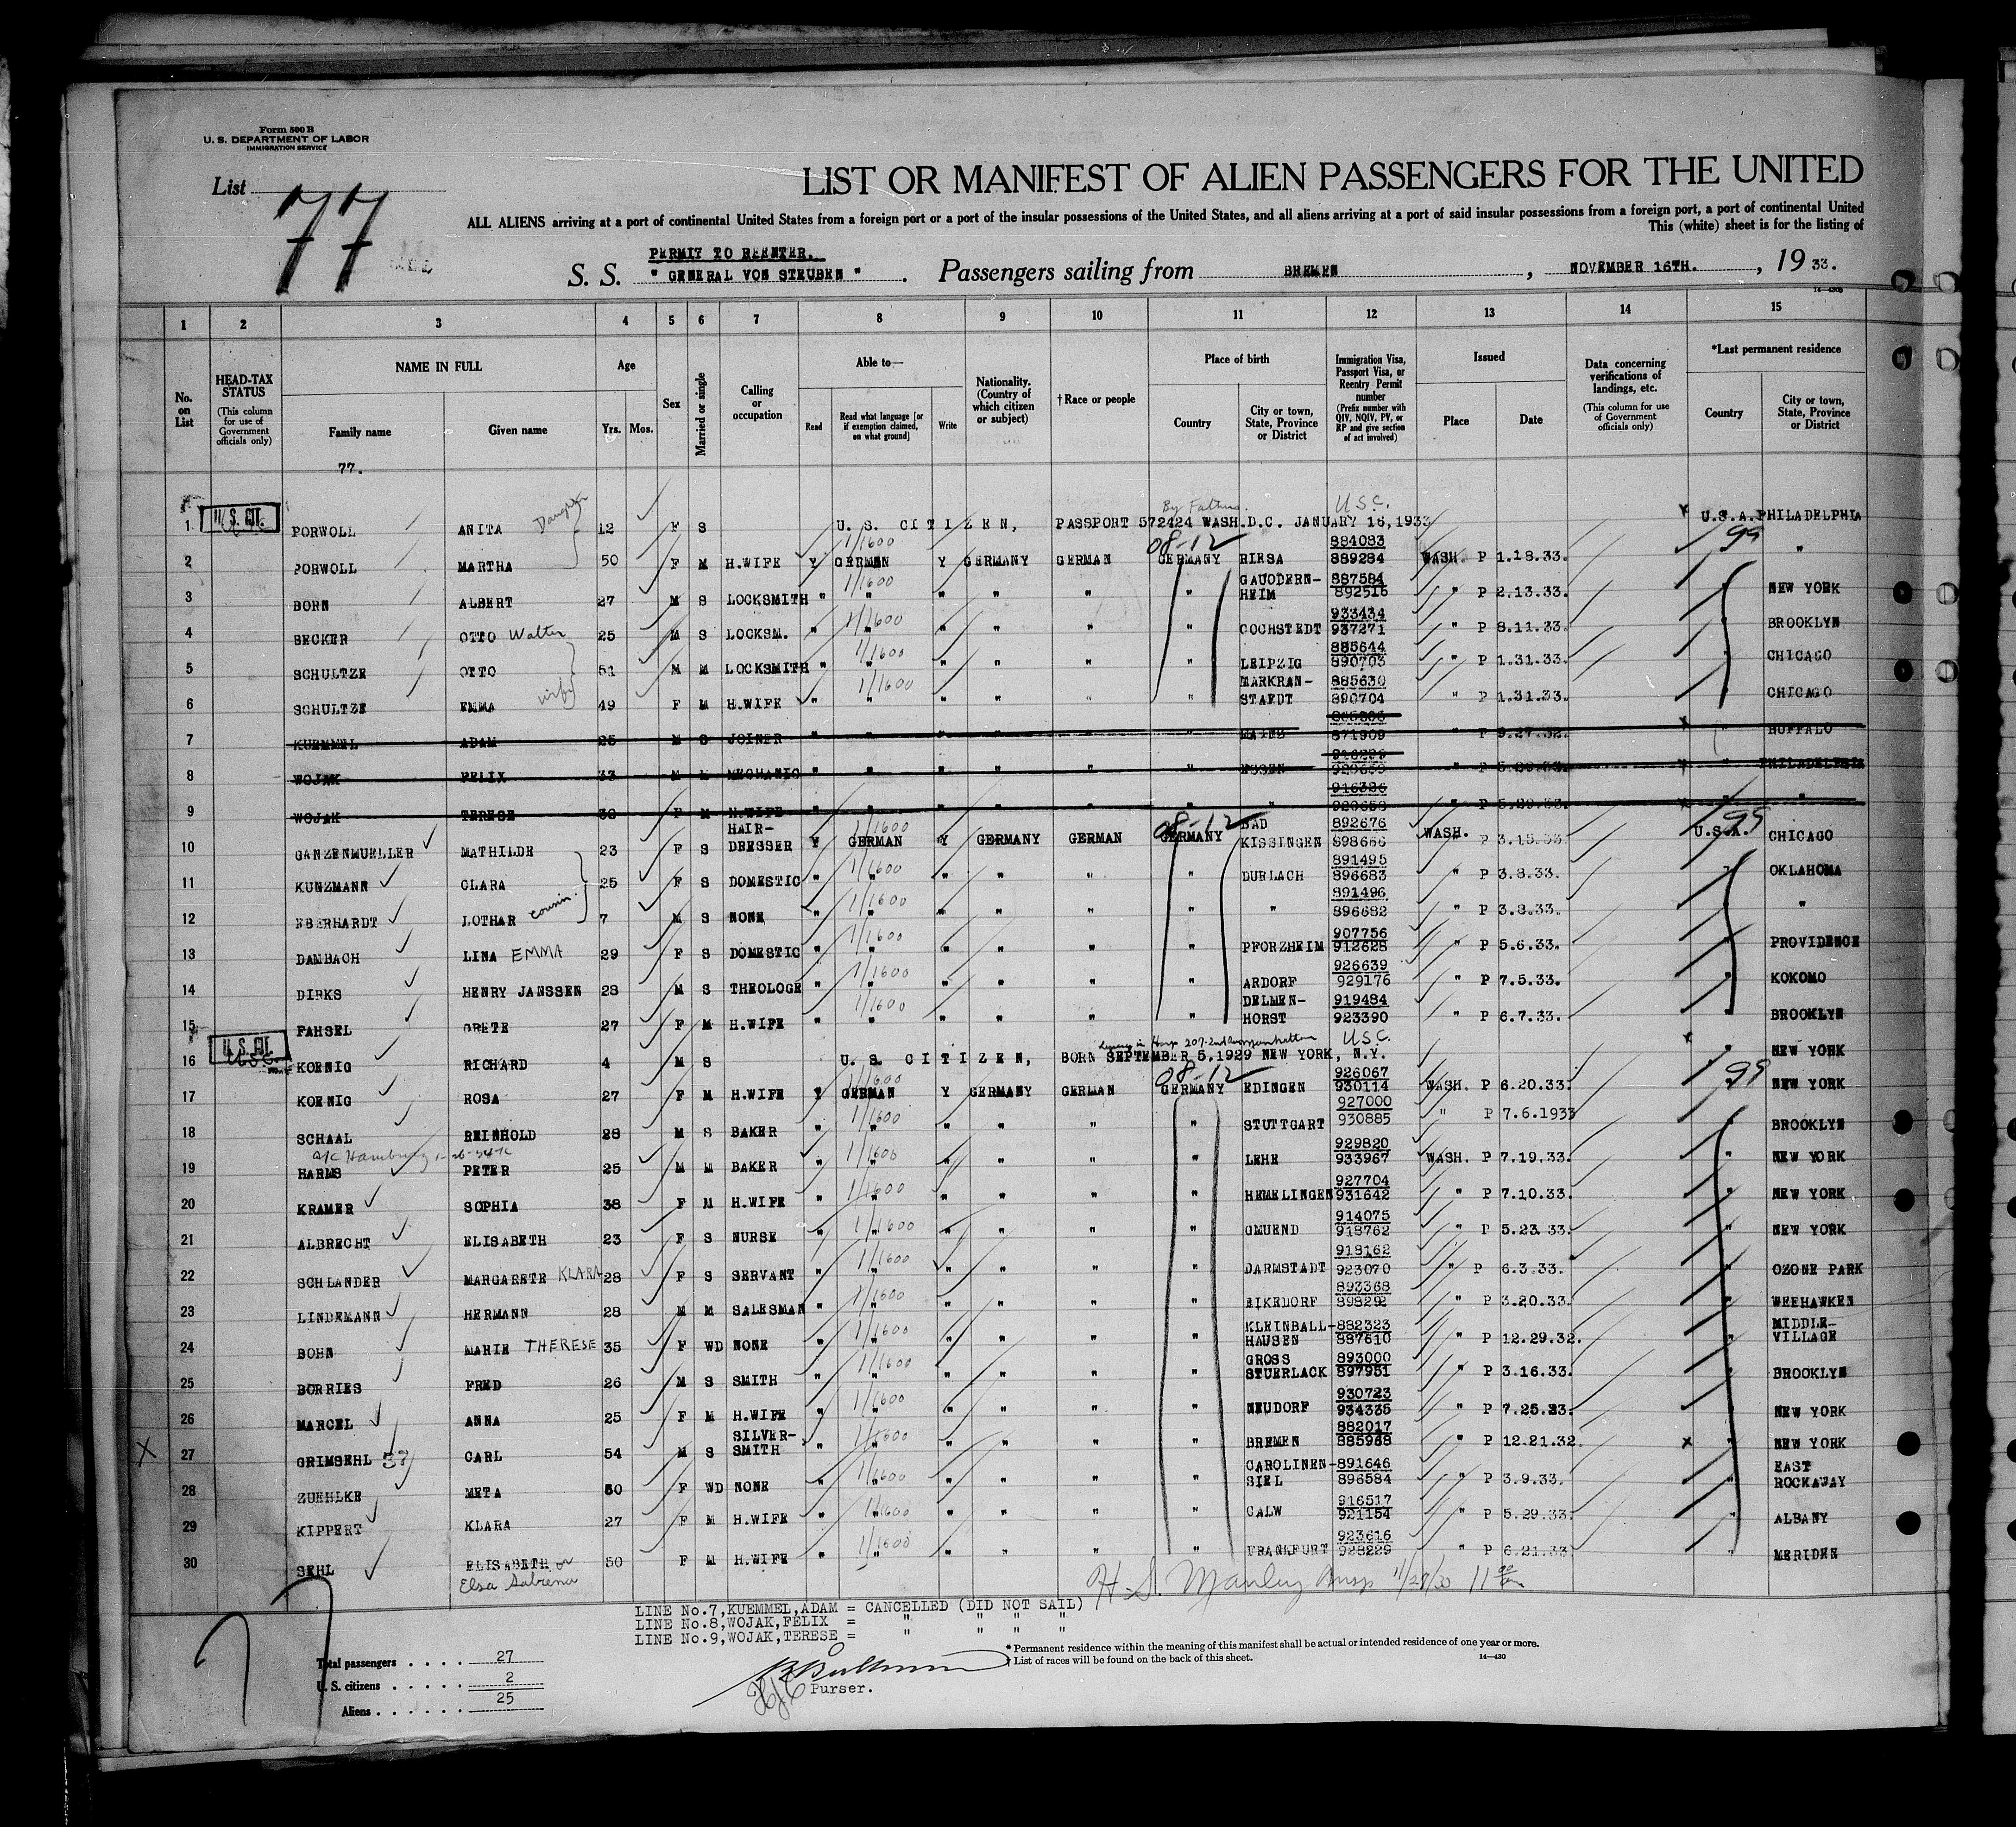 Form 500 B
U. S. DEPARTMENT OF LABOR
IMMIGRATION SERVICE
List 77
LIST OR MANIFEST OF ALIEN PASSENGERS FOR THE UNITED
ALL ALIENS arriving at a port of continental United States from a foreign port or a port of the insular possessions of the United States, and all aliens arriving at a port of said insular possessions from a foreign port, a port of continental United
This (white) sheet is for the listing of
PERMIT TO REENTER.
S. S. " GENERAL VON STEUBEN ". Passengers sailing from BREMEN, NOVEMBER 16TH., 19 33.
1 2 3 4 5 6 7 8 9 10 11 12 13 14 15
No. on List
HEAD-TAX STATUS (This column for use of Government officials only)
NAME IN FULL
Family name
Given name
Age
Yrs. Mos.
Sex
Married or single
Calling or occupation
Able to—
Read
Read what language [or if exemption claimed, on what ground]
Write
Nationality. (Country of which citizen or subject)
†Race or people
Place of birth
Country
City or town, State, Province or District
Immigration Visa, Passport Visa, or Reentry Permit number (Prefix number with QIV, NQIV, PV, or RP and give section of act involved)
Issued
Place
Date
Data concerning verifications of landings, etc. (This column for use of Government officials only)
*Last permanent residence
Country
City or town, State, Province or District
77.
1 U.S. CIT. PORWOLL ANITA Daughter 12 F S U. S. CITIZEN, PASSPORT 572424 WASH.D.C. JANUARY 16,1933 By Father. U.S.C. U.S.A. PHILADELPHIA
2 PORWOLL MARTHA 50 F M H.WIFE Y GERMAN Y GERMANY GERMAN GERMANY RIESA 884083 889284 WASH. P 1.18.33. 99 "
3 BORN ALBERT 27 M S LOCKSMITH " " " " " " GAUODERN-HEIM 887584 892516 " P 2.13.33. NEW YORK
4 BECKER OTTO Walter 25 M S LOCKSM. " " " " " " COCHSTEDT 933434 937271 " P 8.11.33. BROOKLYN
5 SCHULTZE OTTO 51 M M LOCKSMITH " " " " " " LEIPZIG 885644 890703 " P 1.31.33. CHICAGO
6 SCHULTZE EMMA wife 49 F M H.WIFE " " " " " " MARKRAN-STAEDT 885630 890704 " P 1.31.33. CHICAGO
7 KUEMMEL ADAM 25 M S JOINER " " " " " " MAINZ 871909 " P 9.27.32. " BUFFALO
8 WOJAK FELIX 33 M M MECHANIC " " " " " " ESSEN " P " PHILADELPHIA
9 WOJAK TERESE 30 F M H.WIFE " " " " " " " 916326 920658 " P 5.29.33. " "
10 GANZENMUELLER MATHILDE 23 F S HAIR-DRESSER Y GERMAN Y GERMANY GERMAN GERMANY BAD KISSINGEN 892676 898666 WASH. P 3.15.33. U.S.A. 99 CHICAGO
11 KUNZMANN CLARA 25 F S DOMESTIC " " " " " " DURLACH 891495 896683 " P 3.8.33. " OKLAHOMA
12 EBERHARDT LOTHAR cousin. 7 M S NONE " " " " " " " 891496 896682 " P 3.8.33. "
13 DAMBACH LINA EMMA 29 F S DOMESTIC " " " " " " PFORZHEIM 907756 912628 " P 5.6.33. " PROVIDENCE
14 DIRKS HENRY JANSSEN 28 M S THEOLOGE " " " " " " ARDORF 926639 929176 " P 7.5.33. " KOKOMO
15 FAHSEL GRETE 27 F M H.WIFE " " " " " " DELMEN-HORST 919484 923390 " P 6.7.33. " BROOKLYN
16 U.S. CIT. KOENIG RICHARD 4 M S U. S. CITIZEN, BORN SEPTEMBER 5,1929 NEW YORK, N.Y. U.S.C. " NEW YORK
17 KOENIG ROSA 27 F M H.WIFE Y GERMAN Y GERMANY GERMAN GERMANY EDINGEN 926067 930114 WASH. P 6.20.33. 99 NEW YORK
18 SCHAAL REINHOLD 28 M S BAKER " " " " " " STUTTGART 927000 930885 " P 7.6.1933 BROOKLYN
19 HARMS PETER 25 M M BAKER " " " " " " LEHE 929820 933967 WASH. P 7.19.33. " NEW YORK
20 KRAMER SOPHIA 38 F M H.WIFE " " " " " " HEMELINGEN 927704 931642 " P 7.10.33. " NEW YORK
21 ALBRECHT ELISABETH 23 F S NURSE " " " " " " GMUEND 914075 918762 " P 5.23.33. " NEW YORK
22 SCHLANDER MARGARETE KLARA 28 F S SERVANT " " " " " " DARMSTADT 918162 923070 " P 6.3.33. " OZONE PARK
23 LINDEMANN HERMANN 28 M M SALESMAN " " " " " " EIKEDORF 893368 898292 " P 3.20.33. " WEEHAWKEN
24 BOHN MARIE THERESE 35 F WD NONE " " " " " " KLEINBALL-HAUSEN 882323 887610 " P 12.29.32. " MIDDLE-VILLAGE
25 BORRIES FRED 26 M S SMITH " " " " " " GROSS STUERLACK 893000 897951 " P 3.16.33. " BROOKLYN
26 MARCEL ANNA 25 F M H.WIFE " " " " " " NEUDORF 930723 934335 " P 7.25.33. " NEW YORK
27 GRIMSEHL 57 CARL 54 M S SILVER-SMITH " " " " " " BREMEN 882017 885968 " P 12.21.32. X " NEW YORK
28 ZUEHLKE META 50 F WD NONE " " " " " " CAROLINEN-SIEL 891646 896584 " P 3.9.33. " EAST ROCKAWAY
29 KIPPERT KLARA 27 F M H.WIFE " " " " " " CALW 916517 921154 " P 5.29.33. " ALBANY
30 SEHL ELISABETH or Elsa Sabrena 50 F M H.WIFE " " " " " " FRANKFURT 923616 928229 " P 6.21.33 " MERIDEN
LINE No.7,KUEMMEL,ADAM = CANCELLED (DID NOT SAIL)
LINE No.8,WOJAK,FELIX = " " " "
LINE No.9,WOJAK,TERESE = " " " "
Total passengers . . . . 27
U. S. citizens . . . . . 2
Aliens . . . . . . 25
Purser.
* Permanent residence within the meaning of this manifest shall be actual or intended residence of one year or more.
† List of races will be found on the back of this sheet.
14—430